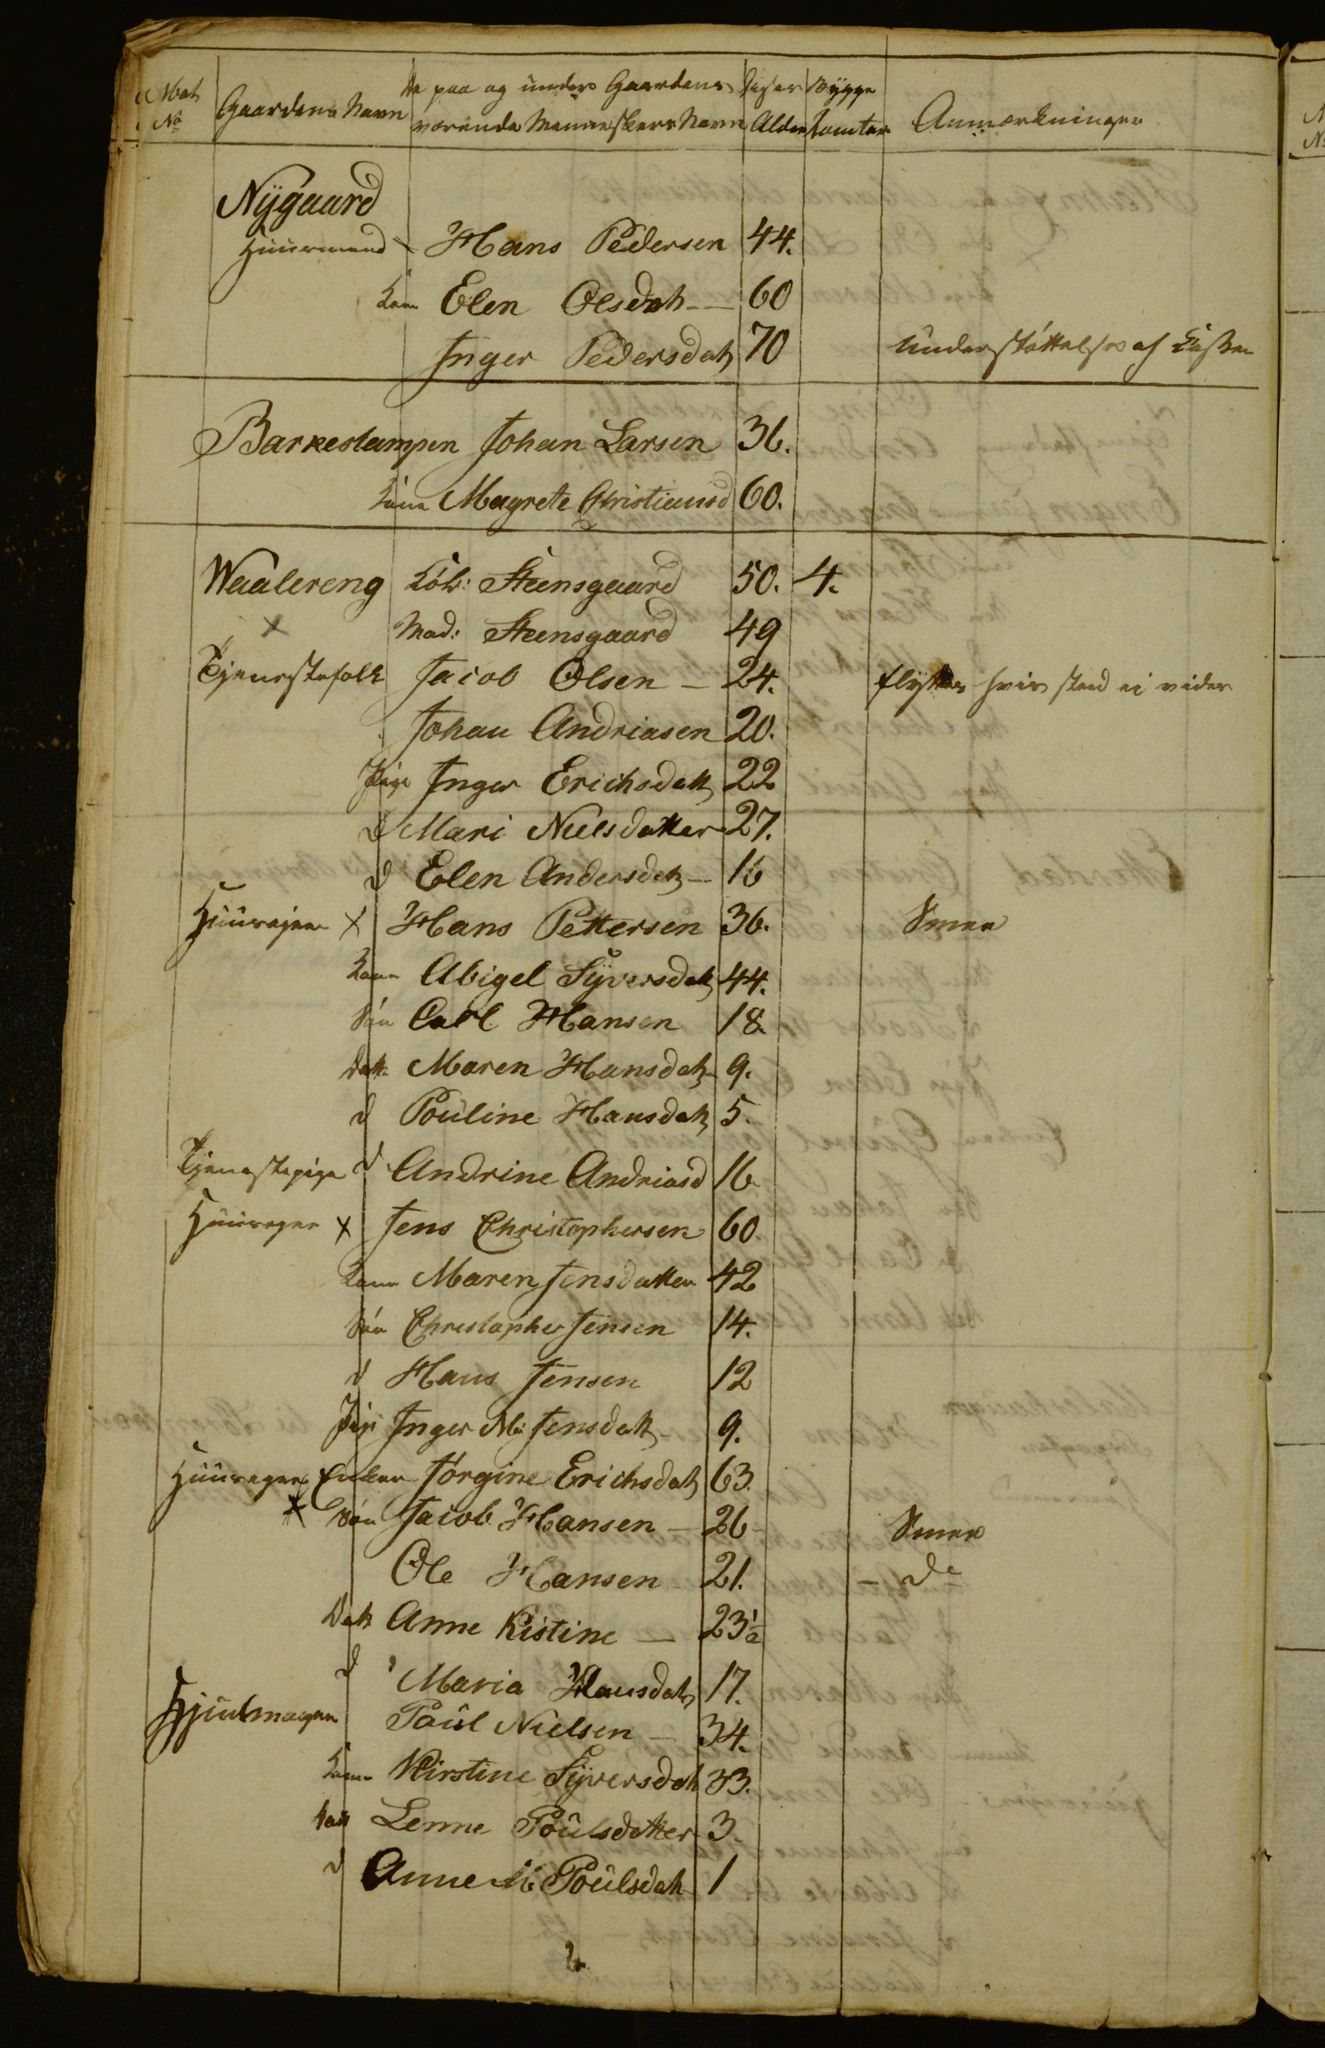 Mat No Gaardens Navn De paa og under Gaardens værende Menneskers Navn Disses Alder Bygge Tomter Anmærkninger
Nÿgaard
Huusmand Hans Pedersen 44.
Kone Elen Olsdatt — 60
Inger Pedersdatt 70 Understøttelse af Kassen
Barkestampen Johan Larsen 36.
Kone Magrete Christiansd 60.
Waalereng Kbh: Steensgaard 50. 4.
x Mad: Steensgaard 49
Tjenestefolk Jacob Olsen — 24. flyttes hvis sted ei vides
Johan Andriasen 20.
Pige Inger Erichsdatt 22
d Mari Nielsdatter 27.
d Elen Andersdatt — 16
Huusejer x Hans Pettersen 36. Smed
Kone Abigel Syversdatt 44.
Søn Carl Hansen 18
Datt Maren Hansdatt 9.
d Pouline Hansdatt 5.
Tjenestepige d Andrine Andriasd 16
Huuseger x Jens Christophersen 60.
Kone Maren Jensdatter 42
Søn Christopher Jensen 14.
d Hans Jensen 12
Pige Inger M: Jensdatt 9.
Huuseger Enken Jörgine Erichsdatt 63.
x Søn Jacob Hansen — 26 Smed
Ole Hansen 21. — do
Datt Anne Kistine — 23½
d Maria Hansdatt 17.
Hjulmager Paul Nielsen — 34.
Kone Kirstine Syversdatt 33.
datt Lenne Poulsdatter 3.
d Anne M. Poulsdatt 1